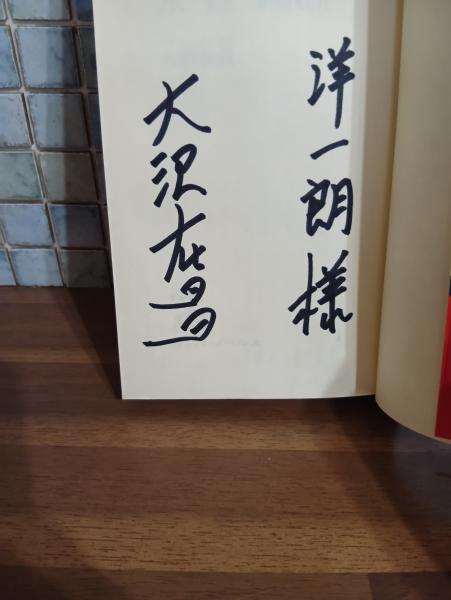 洋一朗様
大沢在昌